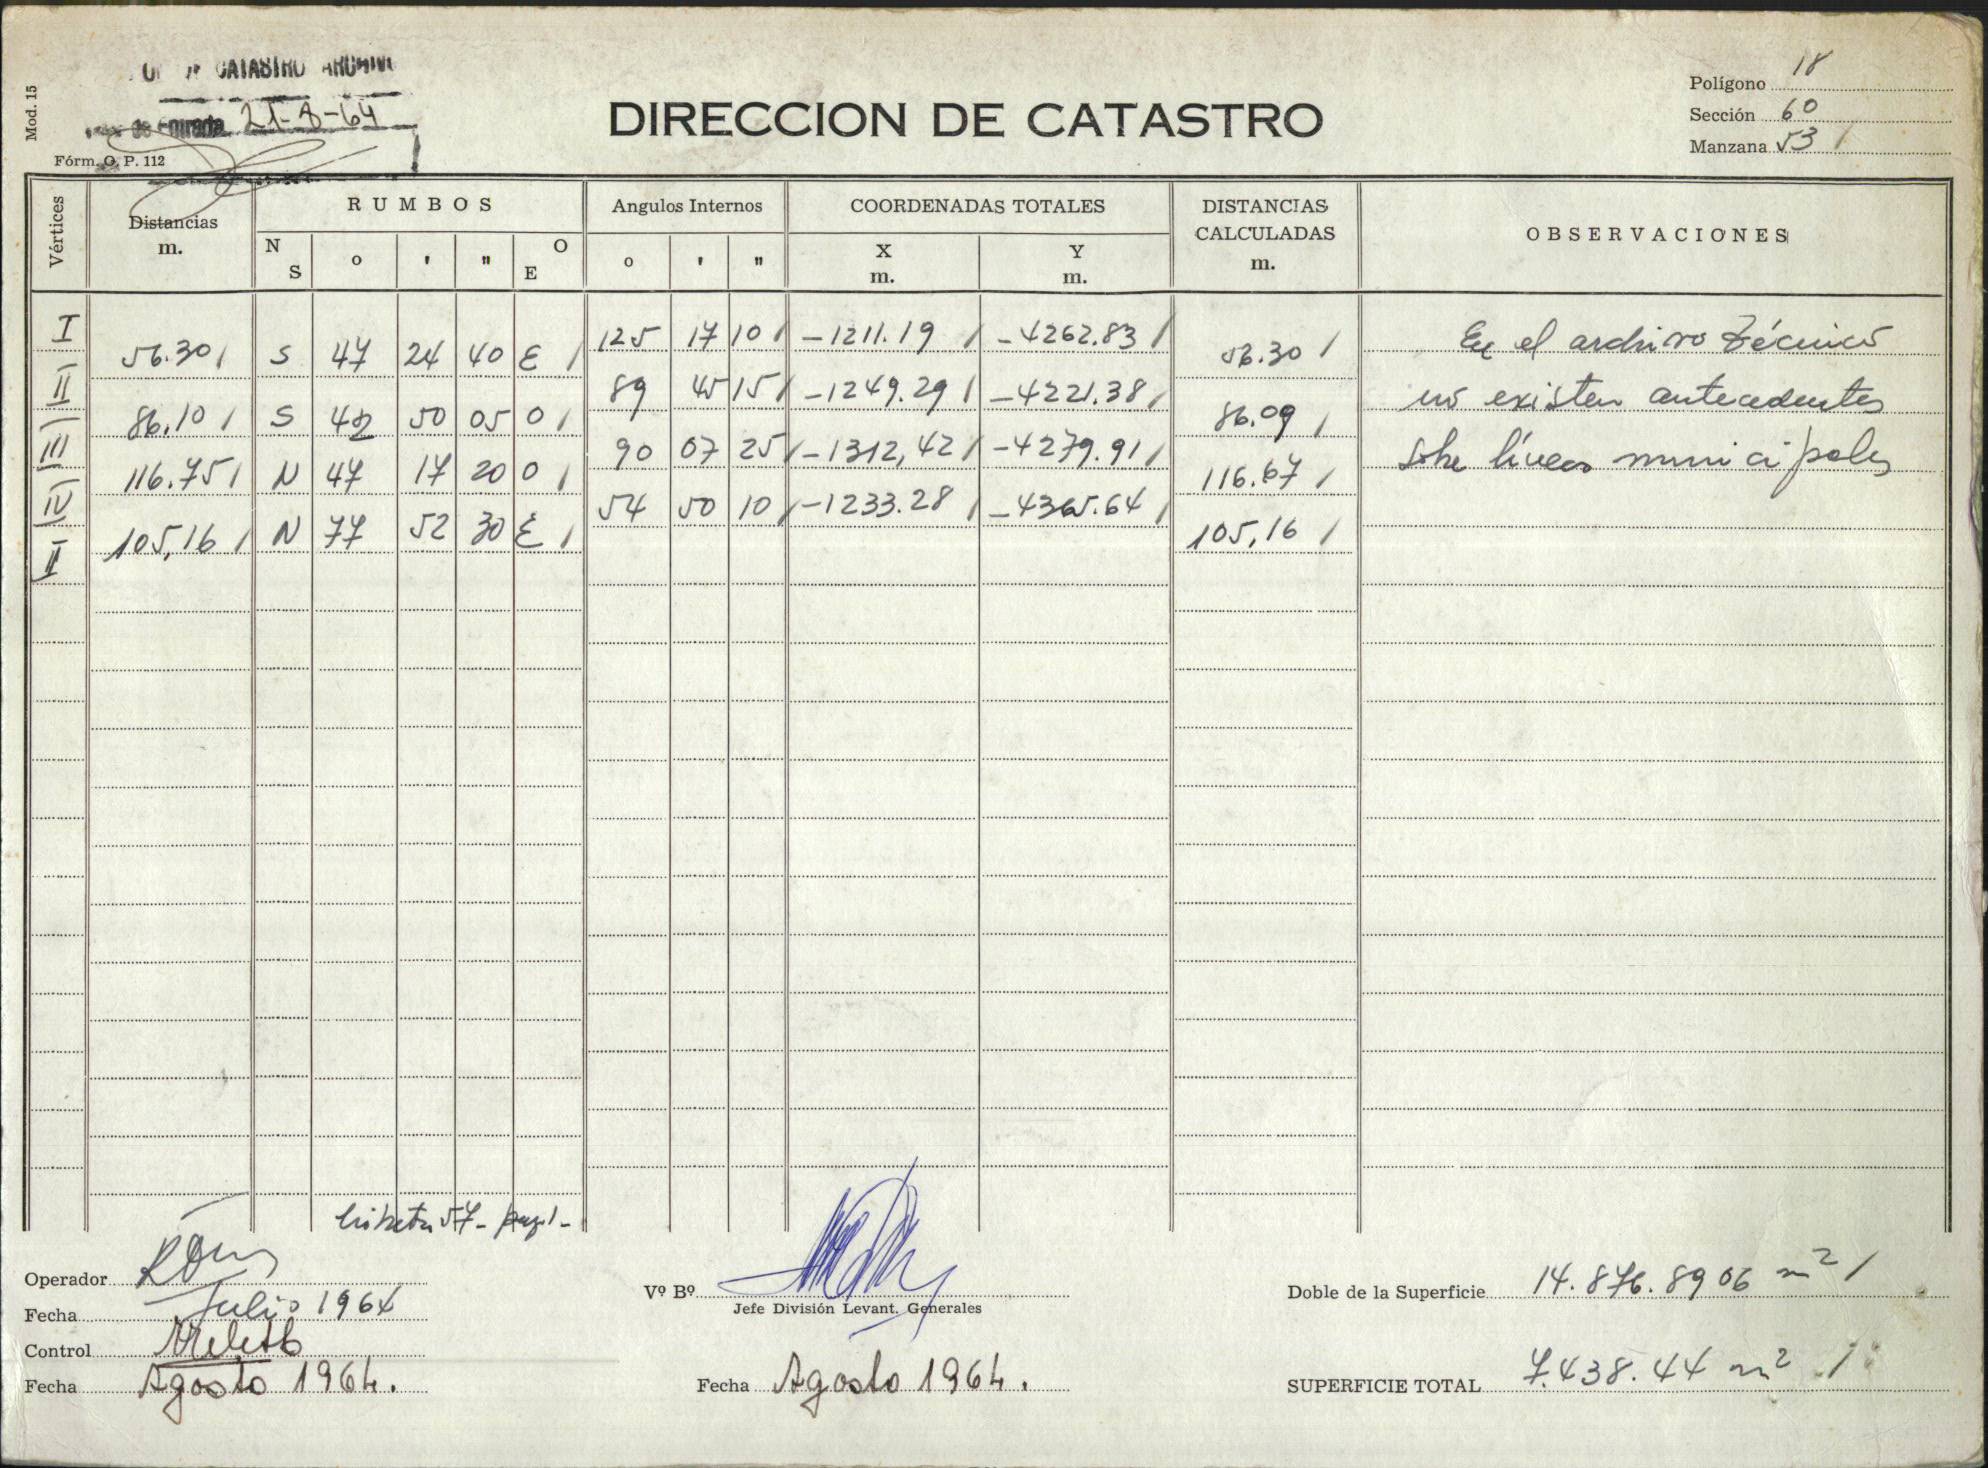 CATASTRO ARCHIVO
de Entrada 21-8-64
Mod. 15
Fórm. O. P. 112
DIRECCION DE CATASTRO
Polígono 18
Sección 60
Manzana 53 /
Vértices
Distancias
m.
RUMBOS
N S ° ' " O E
Angulos Internos
° ' "
COORDENADAS TOTALES
X
m.
Y
m.
DISTANCIAS
CALCULADAS
m.
OBSERVACIONES
I 125 17 10 / -1211.19 / -4262.83 /
56.30 / S 47 24 40 E / 56.30 /
II 89 45 15 / -1249.29 / -4221.38 /
86.10 / S 42 50 05 O / 86.09 /
III 90 07 25 / -1312,42 / -4279.91 /
116.75 / N 47 17 20 O / 116.67 /
IV 54 50 10 / -1233.28 / -4365.64 /
105,16 / N 77 52 30 E / 105,16 /
I
En el archivo técnico
no existen antecedentes
sobre líneas municipales
libreta 57- pag 1-
Operador
Fecha Julio 1964
Control
Fecha Agosto 1964.
Vº Bº
Jefe División Levant. Generales
Fecha Agosto 1964.
Doble de la Superficie 14.876.8906 m² /
SUPERFICIE TOTAL 7.438.44 m² /